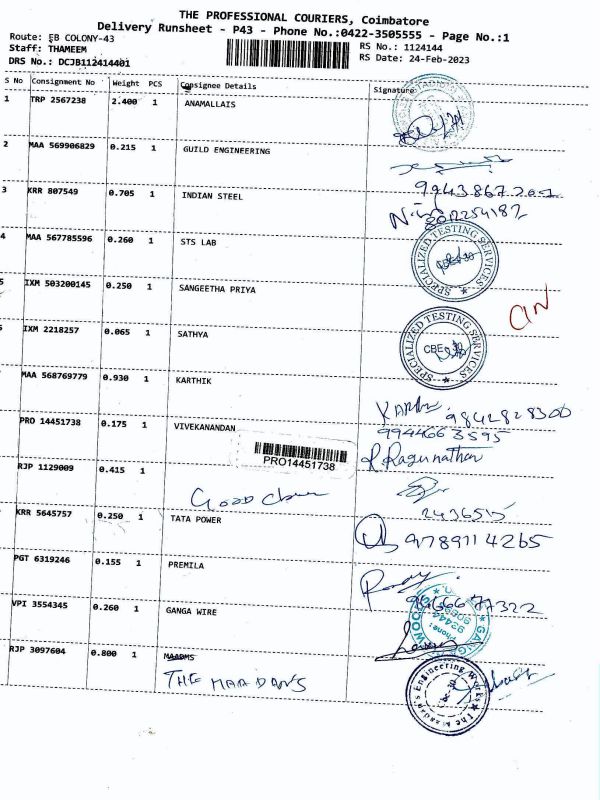 THE PROFESSIONAL COURIERS, Coimbatore
Delivery Runsheet - P43 - Phone No.:0422-3505555 - Page No.:1
Route: EB COLONY-43
RS No.: 1124144
Staff: THAMEEM
RS Date: 24-Feb-2023
DRS No.: DCJB112414401
S No Consignment No Weight PCS Consignee Details Signature
1 TRP 2567238 2.400 1 ANAMALLAIS
2 MAA 569906829 0.215 1 GUILD ENGINEERING
3 KRR 807549 0.705 1 INDIAN STEEL
4 MAA 567785596 0.260 1 STS LAB
SPECIALIZED TESTING SERVICES
5 IXM 503200145 0.250 1 SANGEETHA PRIYA
IXM 2218257 0.065 1 SATHYA
SPECIALIZED TESTING SERVICES
CBE
MAA 568769779 0.930 1 KARTHIK
9842828300
PRO 14451738 0.175 1 VIVEKANANDAN
9944663595
PRO14451738
R. Ragunathan
RJP 1129009 0.415 1
2436515
KRR 5645757 0.250 1 TATA POWER
9789114265
PGT 6319246 0.155 1 PREMILA
VPI 3554345 0.260 1 GANGA WIRE
RJP 3097604 0.800 1 MAADMS
THE MAADANS
The Maadan's Engineering Works